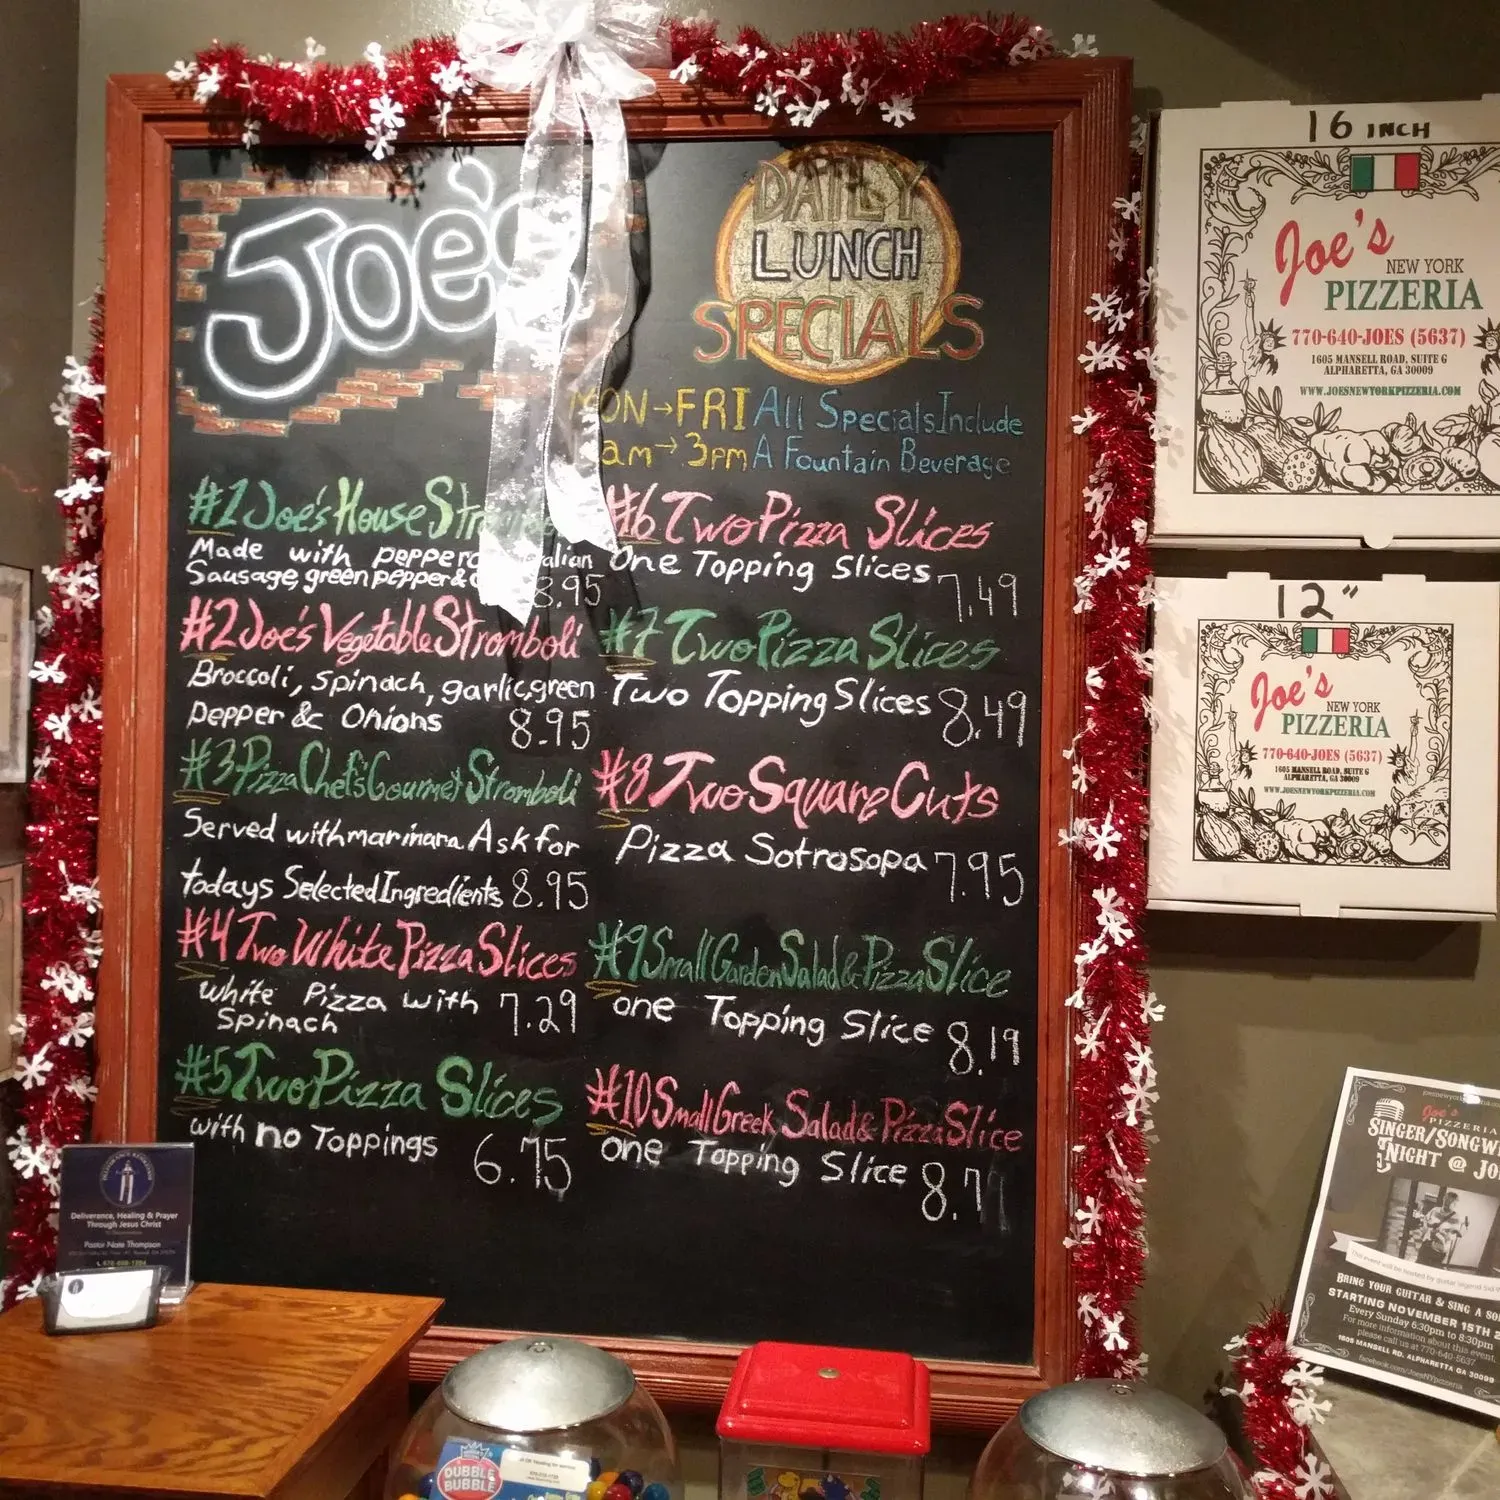 Joe's
DAILY
LUNCH
SPECIALS
MON→FRI All Specials Include
am→3pm A Fountain Beverage
#1 Joe's House
Made with
Sausage, green pepper &
8.95
#2 Joe's Vegetable Stromboli
Broccoli, spinach, garlic, green
pepper & Onions 8.95
#3 Pizza Chef's Gourmet Stromboli
Served with marinara Ask for
todays Selected Ingredients 8.95
#4 Two White Pizza Slices
White Pizza with
Spinach 7.29
#5 Two Pizza Slices
with no Toppings 6.75
#6 Two Pizza Slices
One Topping Slices 7.49
#7 Two Pizza Slices
Two Topping Slices 8.49
#8 Two Square Cuts
Pizza Sotrosopa 7.95
#9 Small Garden Salad & Pizza Slice
one Topping Slice 8.19
#10 Small Greek Salad & Pizza Slice
one Topping Slice
16 INCH
Joe's
NEW YORK
PIZZERIA
770-640-JOES (5637)
1605 MANSELL ROAD, SUITE G
ALPHARETTA, GA 30009
WWW.JOESNEWYORKPIZZERIA.COM
12"
Joe's
NEW YORK
PIZZERIA
770-640-JOES (5637)
1605 MANSELL ROAD, SUITE G
ALPHARETTA, GA 30009
WWW.JOESNEWYORKPIZZERIA.COM
Joe's
PIZZERIA
SINGER/
NIGHT @
This event will be hosted by guitar legend
BRING YOUR GUITAR & SING A
STARTING NOVEMBER 15TH
Every Sunday 6:30pm to 8:30pm
For more information about this event,
please call us at 770-640-5637
1605 MANSELL RD. ALPHARETTA GA 30009
facebook.com/JoesNYpizzeria
Deliverance, Healing & Prayer
Through Jesus Christ
Pastor Nate Thompson
DUBBLE
BUBBLE